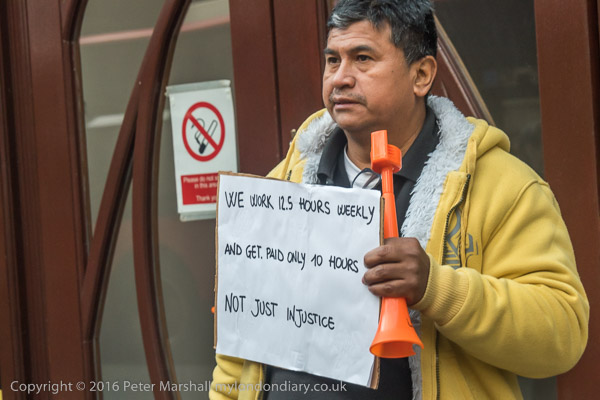 Please do not s
in this area
Thank you
WE WORK 12.5 HOURS WEEKLY
AND GET. PAID ONLY 10 HOURS
NOT JUST INJUSTICE
Copyright © 2016 Peter Marshall mylondondiary.co.uk